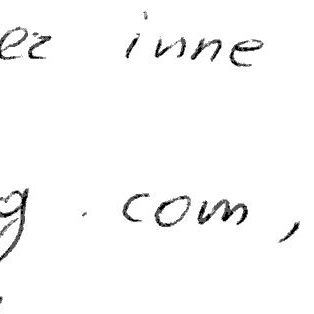 er inne
g . com ,